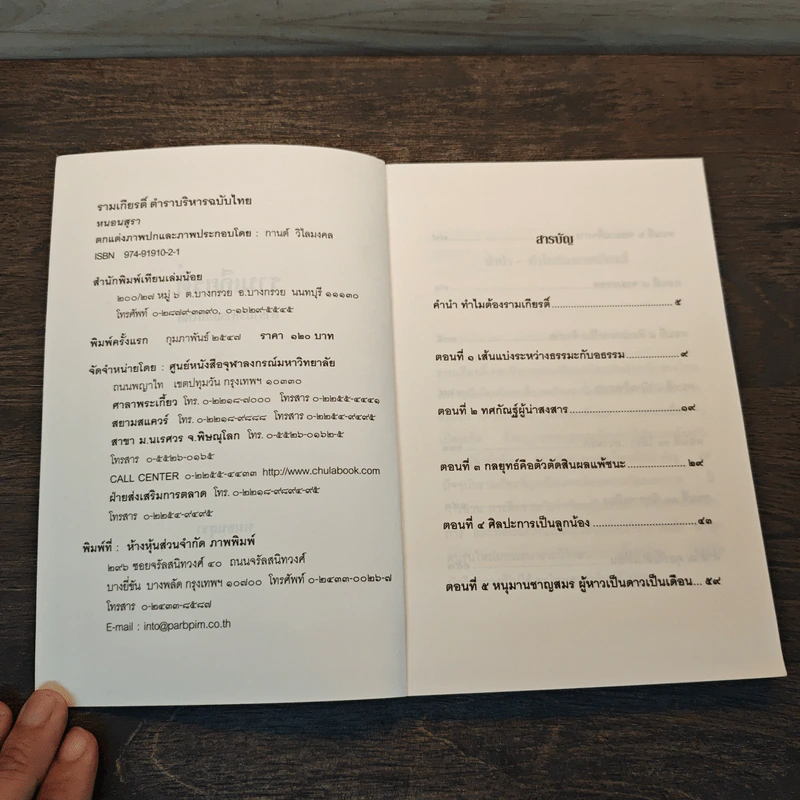 รามเกียรติ์ ตำราบริหารฉบับไทย
หนอนสุรา
ตกแต่งภาพปกและภาพประกอบโดย : กานต์ วิไลมงคล
ISBN 974-91910-2-1
สำนักพิมพ์เทียนเล่มน้อย
๒๐๐/๒๗ หมู่ ๖ ต.บางกรวย อ.บางกรวย นนทบุรี ๑๑๑๓๐
โทรศัพท์ ๐-๒๘๗๙-๓๓๙๖, ๐-๑๖๒๙-๕๕๔๕
พิมพ์ครั้งแรก กุมภาพันธ์ ๒๕๔๗ ราคา ๑๒๐ บาท
จัดจำหน่ายโดย : ศูนย์หนังสือจุฬาลงกรณ์มหาวิทยาลัย
ถนนพญาไท เขตปทุมวัน กรุงเทพฯ ๑๐๓๓๐
ศาลาพระเกี้ยว โทร. ๐-๒๒๑๘-๗๐๐๐ โทรสาร ๐-๒๒๕๕-๔๔๔๑
สยามสแควร์ โทร. ๐-๒๒๑๘-๙๘๘๘ โทรสาร ๐-๒๒๕๔-๙๔๙๕
สาขา ม.นเรศวร จ.พิษณุโลก โทร. ๐-๕๕๒๖-๐๑๖๒-๕
โทรสาร ๐-๕๕๒๖-๐๑๖๕
CALL CENTER ๐-๒๒๕๕-๔๔๓๓ http://www.chulabook.com
ฝ่ายส่งเสริมการตลาด โทร. ๐-๒๒๑๘-๙๘๙๔-๙๕
โทรสาร ๐-๒๒๕๔-๙๔๙๕
พิมพ์ที่ : ห้างหุ้นส่วนจำกัด ภาพพิมพ์
๒๙๖ ซอยจรัลสนิทวงศ์ ๔๐ ถนนจรัลสนิทวงศ์
บางยี่ขัน บางพลัด กรุงเทพฯ ๑๐๗๐๐ โทรศัพท์ ๐-๒๔๓๓-๐๐๒๖-๗
โทรสาร ๐-๒๔๓๓-๘๕๘๗
E-mail : into@parbpim.co.th
สารบัญ
คำนำ ทำไมต้องรามเกียรติ์ ๕
ตอนที่ ๑ เส้นแบ่งระหว่างธรรมะกับอธรรม ๙
ตอนที่ ๒ ทศกัณฐ์ผู้น่าสงสาร ๑๙
ตอนที่ ๓ กลยุทธ์คือตัวตัดสินผลแพ้ชนะ ๒๙
ตอนที่ ๔ ศิลปะการเป็นลูกน้อง ๔๓
ตอนที่ ๕ หนุมานชาญสมร ผู้หาวเป็นดาวเป็นเดือน... ๕๙